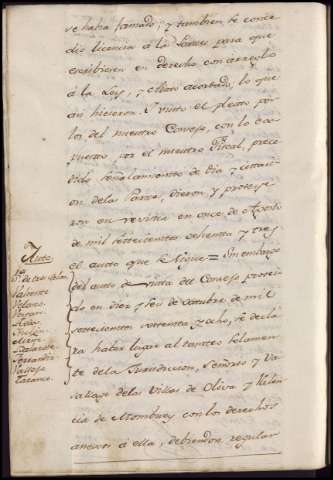 se havia formado; y tambien se conce
dió licencia á las Partes para que
escribiesen en derecho con arreglo
á la Ley, y Auto acordado, lo que
asi hicieron. Y visto el pleito por
los del nuestro Consejo, con lo ex
puesto por el nuestro Fiscal, prece
dido señalamiento de dia y citacion
de las Partes, dieron, y proveye
ron en revista en once de Agosto
de mil setecientos ochenta y tres
el auto que sigue = Sin embargo
Auto
del auto de vista del Consejo proveí
do en diez y seis de Octubre de mil
setecientos setenta y ocho, se decla
ra haber lugar al tanteo solamen
te de la Jurisdiccion, Señorío y Va
sallage de las Villas de Oliva y Valen
cia de Mombuey con los derechos
anexos á ella, debiendose regular
Valiente
Velasco